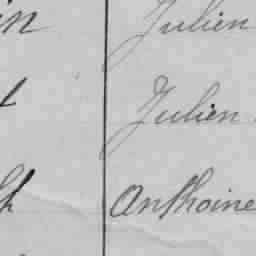 in Julien
t Julien
Anthoine